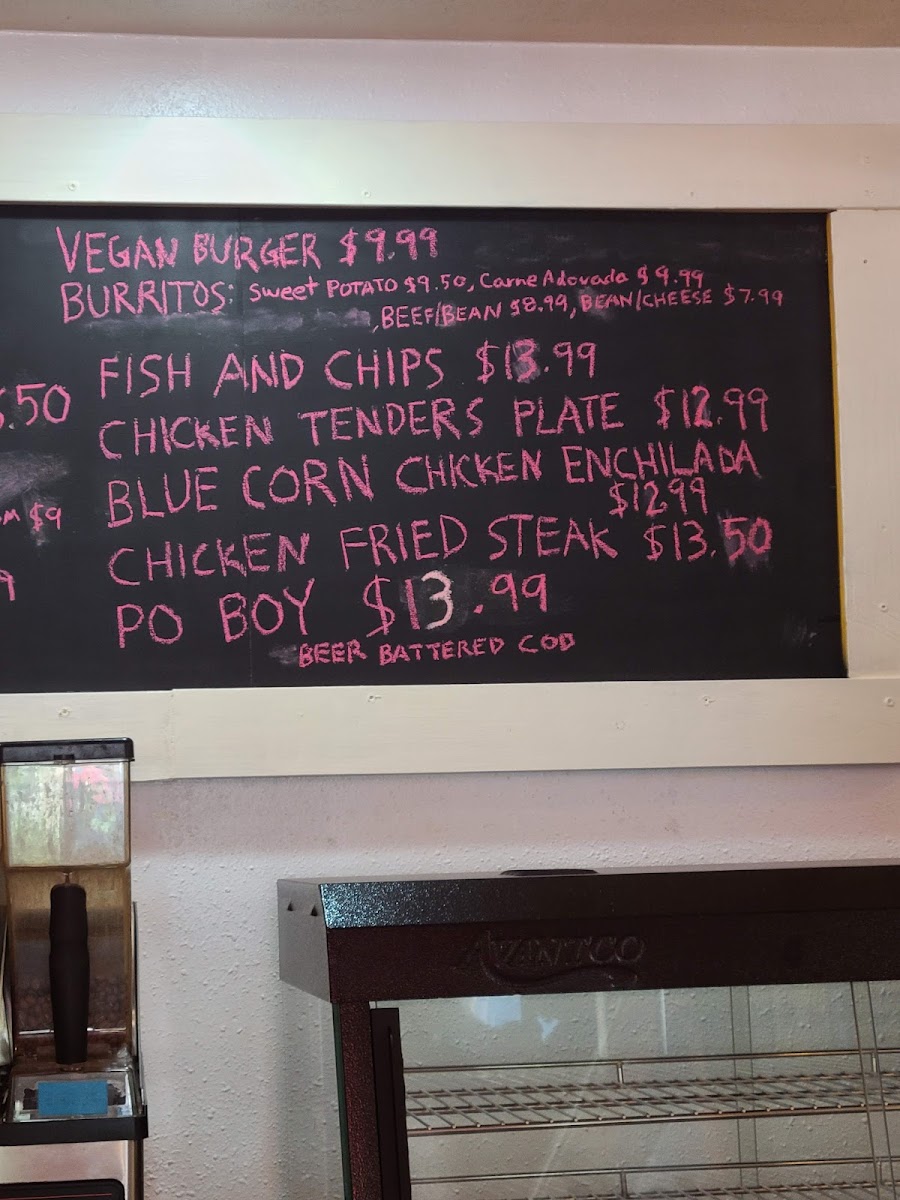 VEGAN BURGER $9.99
BURRITOS: Sweet POTATO $9.50, Carne Adovada $9.99
,BEEF/BEAN $8.99, BEAN/CHEESE $7.99
FISH AND CHIPS $13.99
.50
CHICKEN TENDERS PLATE $12.99
BLUE CORN CHICKEN ENCHILADA
$12.99
$9
CHICKEN FRIED STEAK $13.50
9
PO BOY $13.99
BEER BATTERED COD
AVANTCO